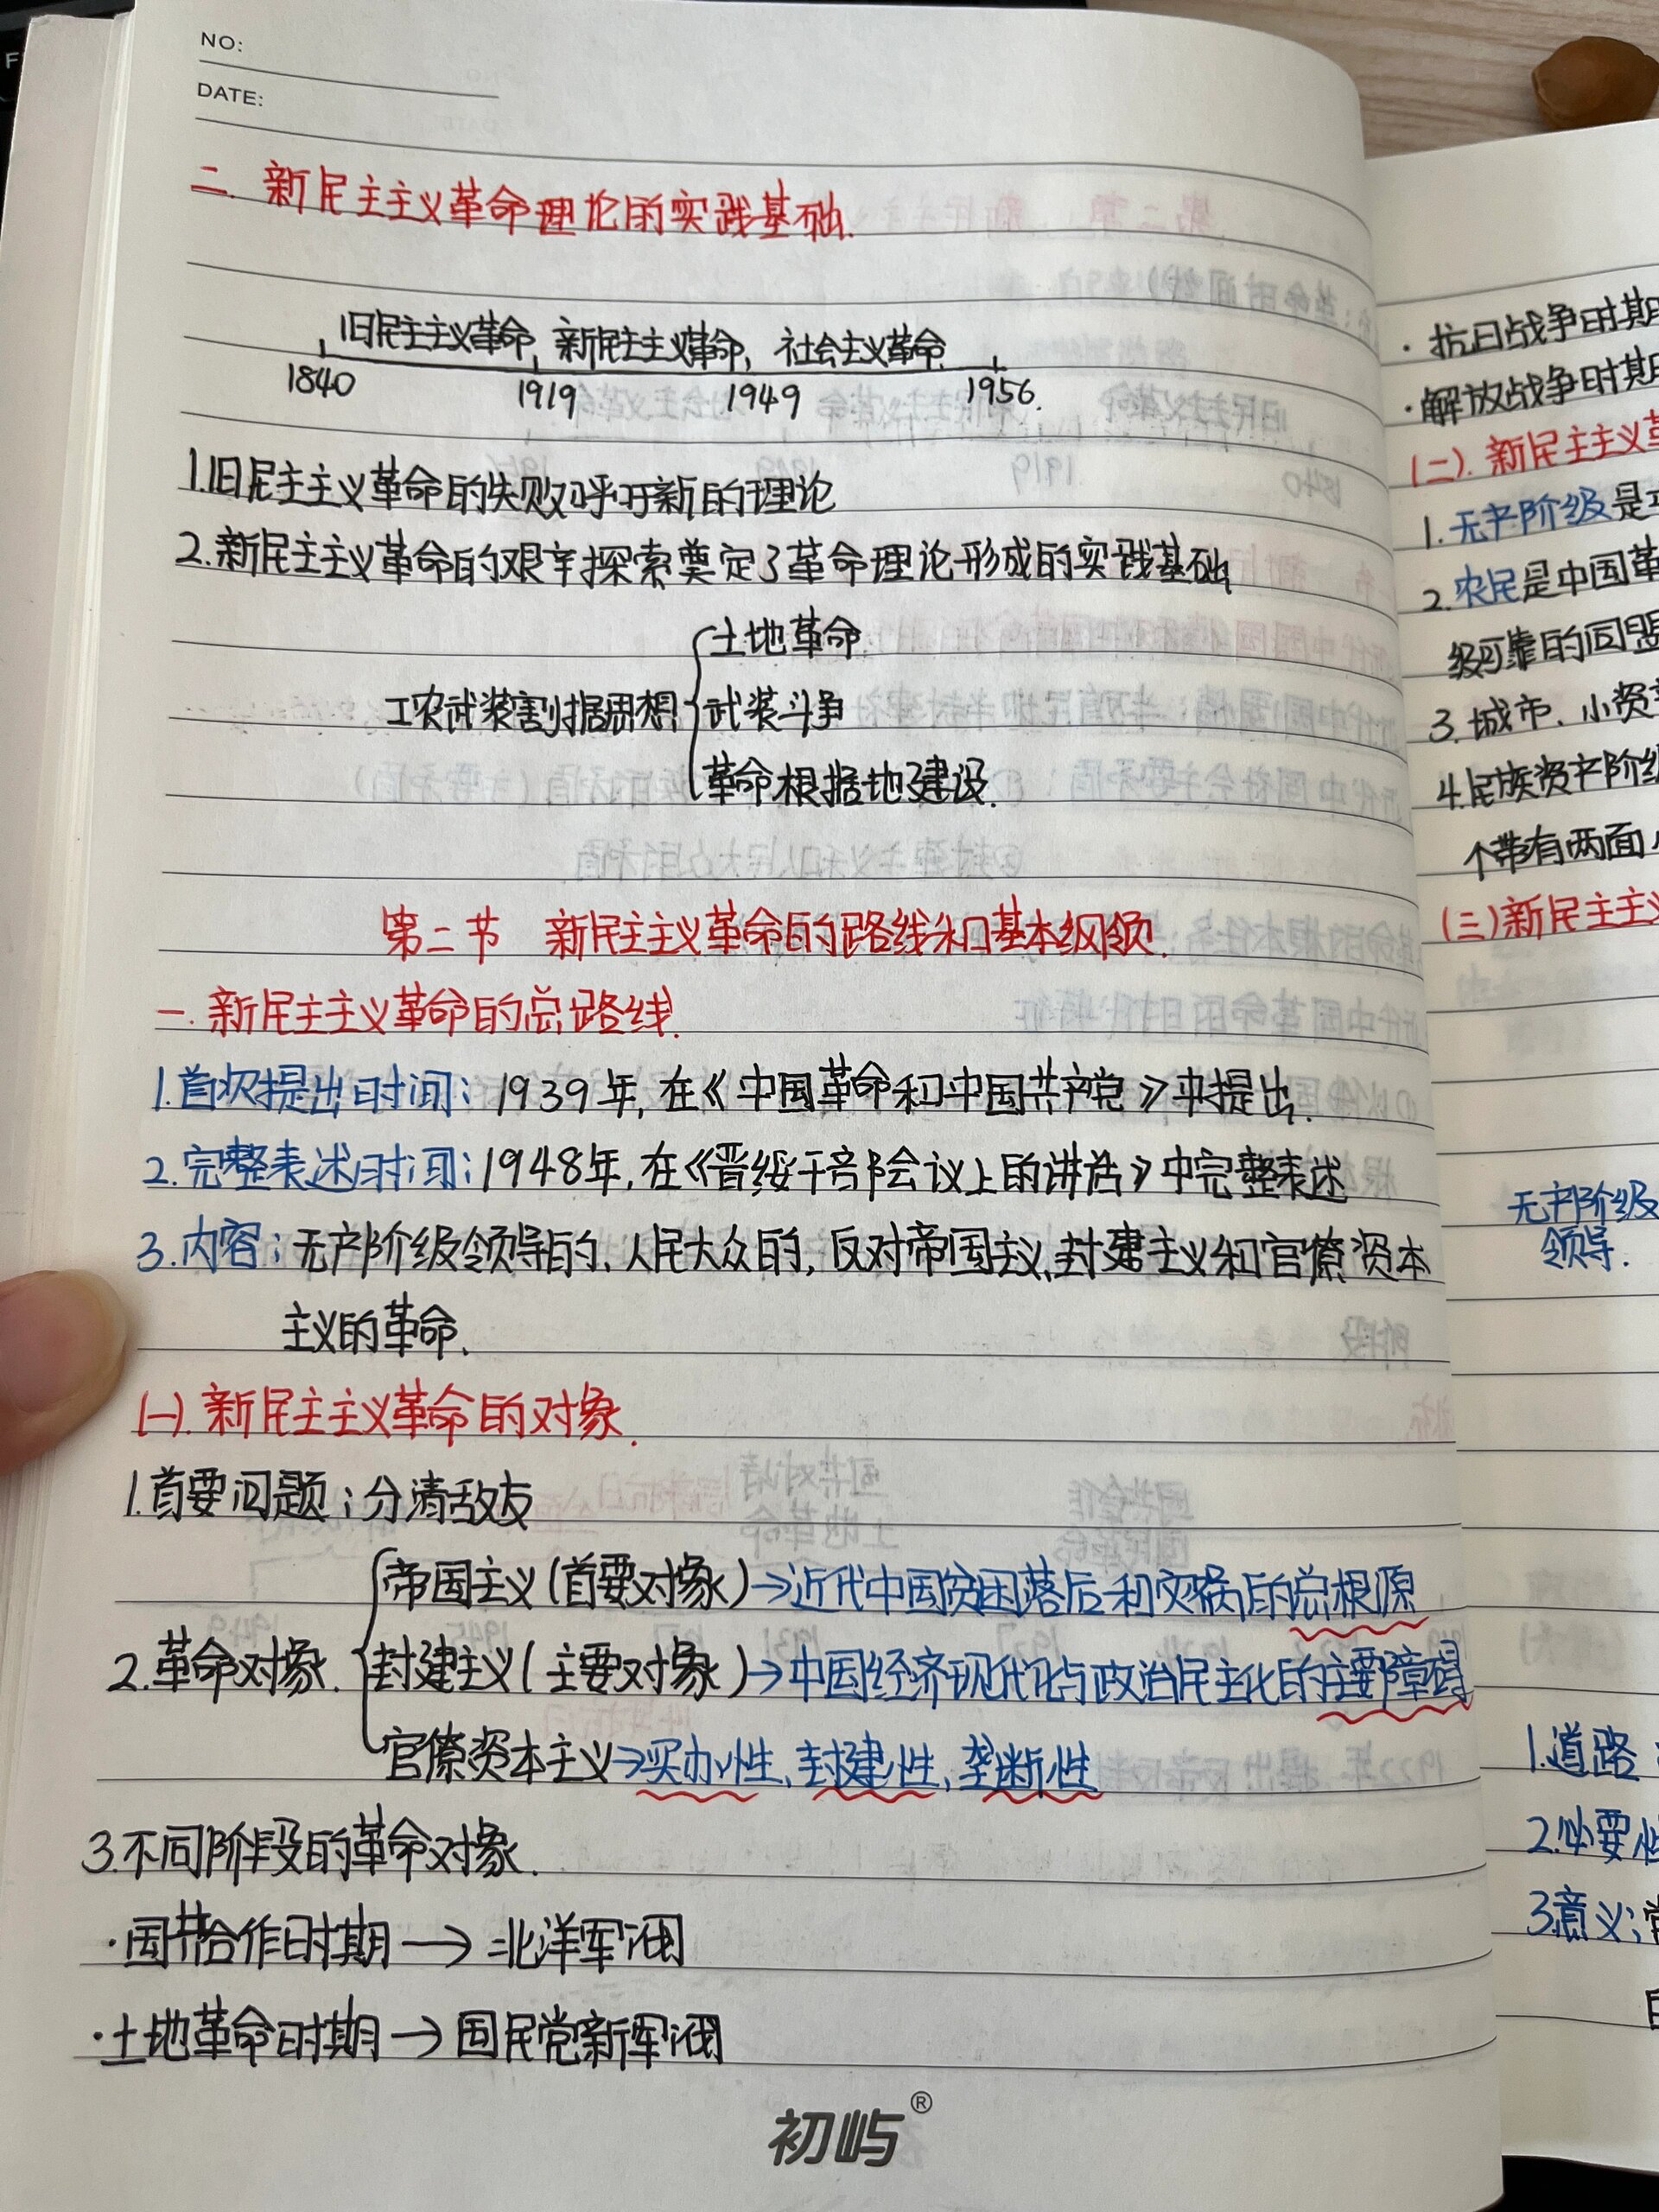 NO:
DATE:
二. 新民主主义革命理论的实践基础.
旧民主主义革命, 新民主主义革命, 社会主义革命.
1840 1919 1949 1956.
1.旧民主主义革命的失败呼吁新的理论
2.新民主主义革命的艰辛探索奠定了革命理论形成的实践基础
土地革命
工农武装割据思想 武装斗争
革命根据地建设.
第二节 新民主主义革命的路线和基本纲领.
一.新民主主义革命的总路线.
1.首次提出时间: 1939年,在《中国革命和中国共产党》中提出.
2.完整表述时间:1948年,在《晋绥干部会议上的讲话》中完整表述
3.内容:无产阶级领导的、人民大众的,反对帝国主义、封建主义和官僚资本
主义的革命.
(一).新民主主义革命的对象.
1.首要问题:分清敌友
帝国主义(首要对象)→近代中国贫困落后和灾祸的总根源
2.革命对象. 封建主义(主要对象)→中国经济现代化与政治民主化的主要障碍
官僚资本主义→买办性、封建性、垄断性
3.不同阶段的革命对象.
·国共合作时期→北洋军阀
·土地革命时期→国民党新军阀
初屿®
·抗日战争时期
·解放战争时期
(二).新民主主义革
1.无产阶级是
2.农民是中国革
级可靠的同盟
3.城市、小资
4.民族资产阶级
个带有两面
(三)新民主主义
无产阶级
领导.
1.道路
2.必要性
3.意义: